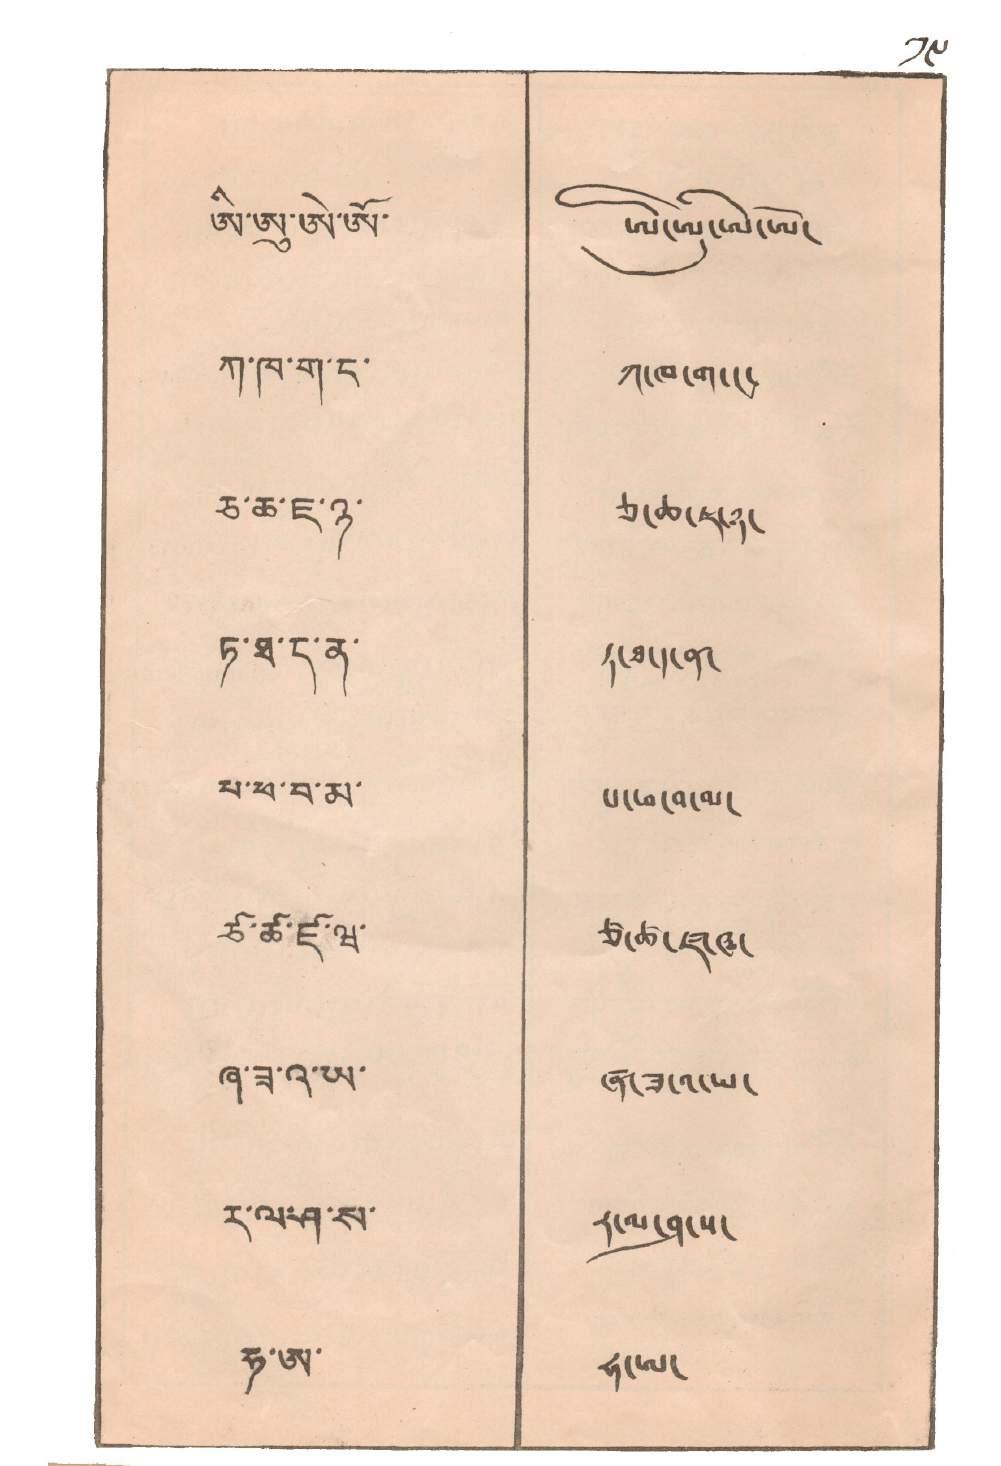 ༡༩
ཨི་ཨུ་ཨེ་ཨོ་ ཨི་ཨུ་ཨེ་ཨོ་
ཀ་ཁ་ག་ང་ ཀ་ཁ་ག་ང་
ཅ་ཆ་ཇ་ཉ་ ཅ་ཆ་ཇ་ཉ་
ཏ་ཐ་ད་ན་ ཏ་ཐ་ད་ན་
པ་ཕ་བ་མ་ པ་ཕ་བ་མ་
ཙ་ཚ་ཛ་ཝ་ ཙ་ཚ་ཛ་ཝ་
ཞ་ཟ་འ་ཡ་ ཞ་ཟ་འ་ཡ་
ར་ལ་ཤ་ས་ ར་ལ་ཤ་ས་
ཧ་ཨ་ ཧ་ཨ་